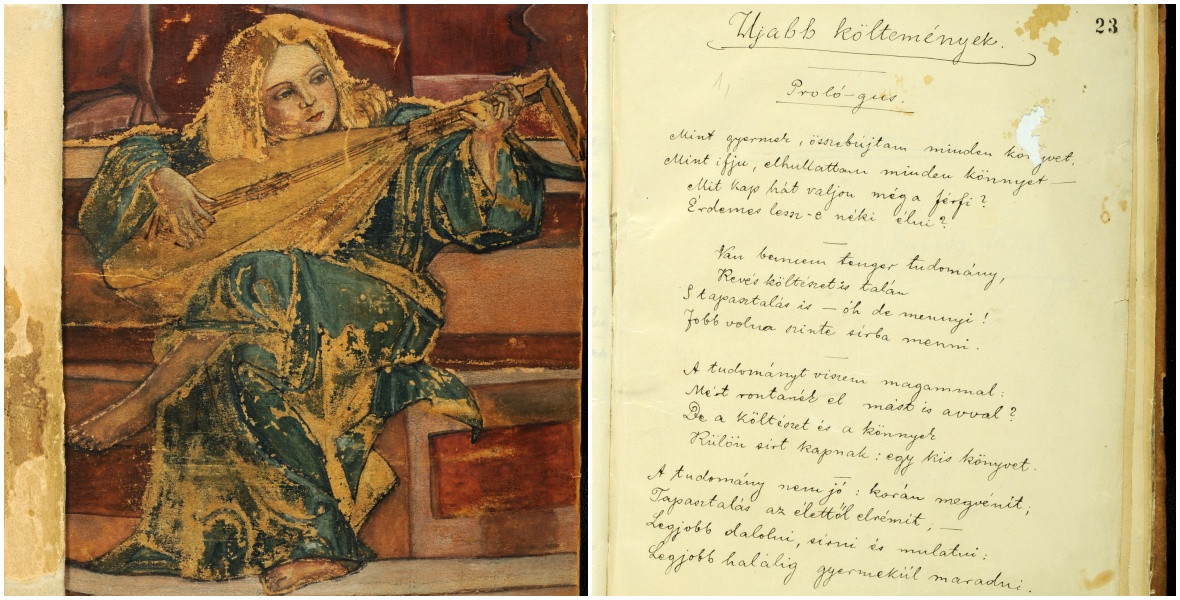 23
Ujabb költemények.
1,
Proló-gus.
Mint gyermek, összebújtam minden könyvet.
Mint ifju, elhullattam minden könnyet —
Mit kap hát valjon még a férfi?
Érdemes lesz-e néki élni?
Van bennem tenger tudomány,
Kevés költészet is talán
S tapasztalás is — óh de mennyi!
Jobb volna szinte sírba menni.
A tudományt viszem magammal:
Mért rontanék el mást is avval?
De a költészet és a könnyek
Külön sírt kapnak: egy kis könyvet.
A tudomány nem jó: korán megvénít;
Tapasztalás az élettől elrémít, —
Legjobb dalolni, sirni és mulatni:
Legjobb halálig gyermekül maradni.